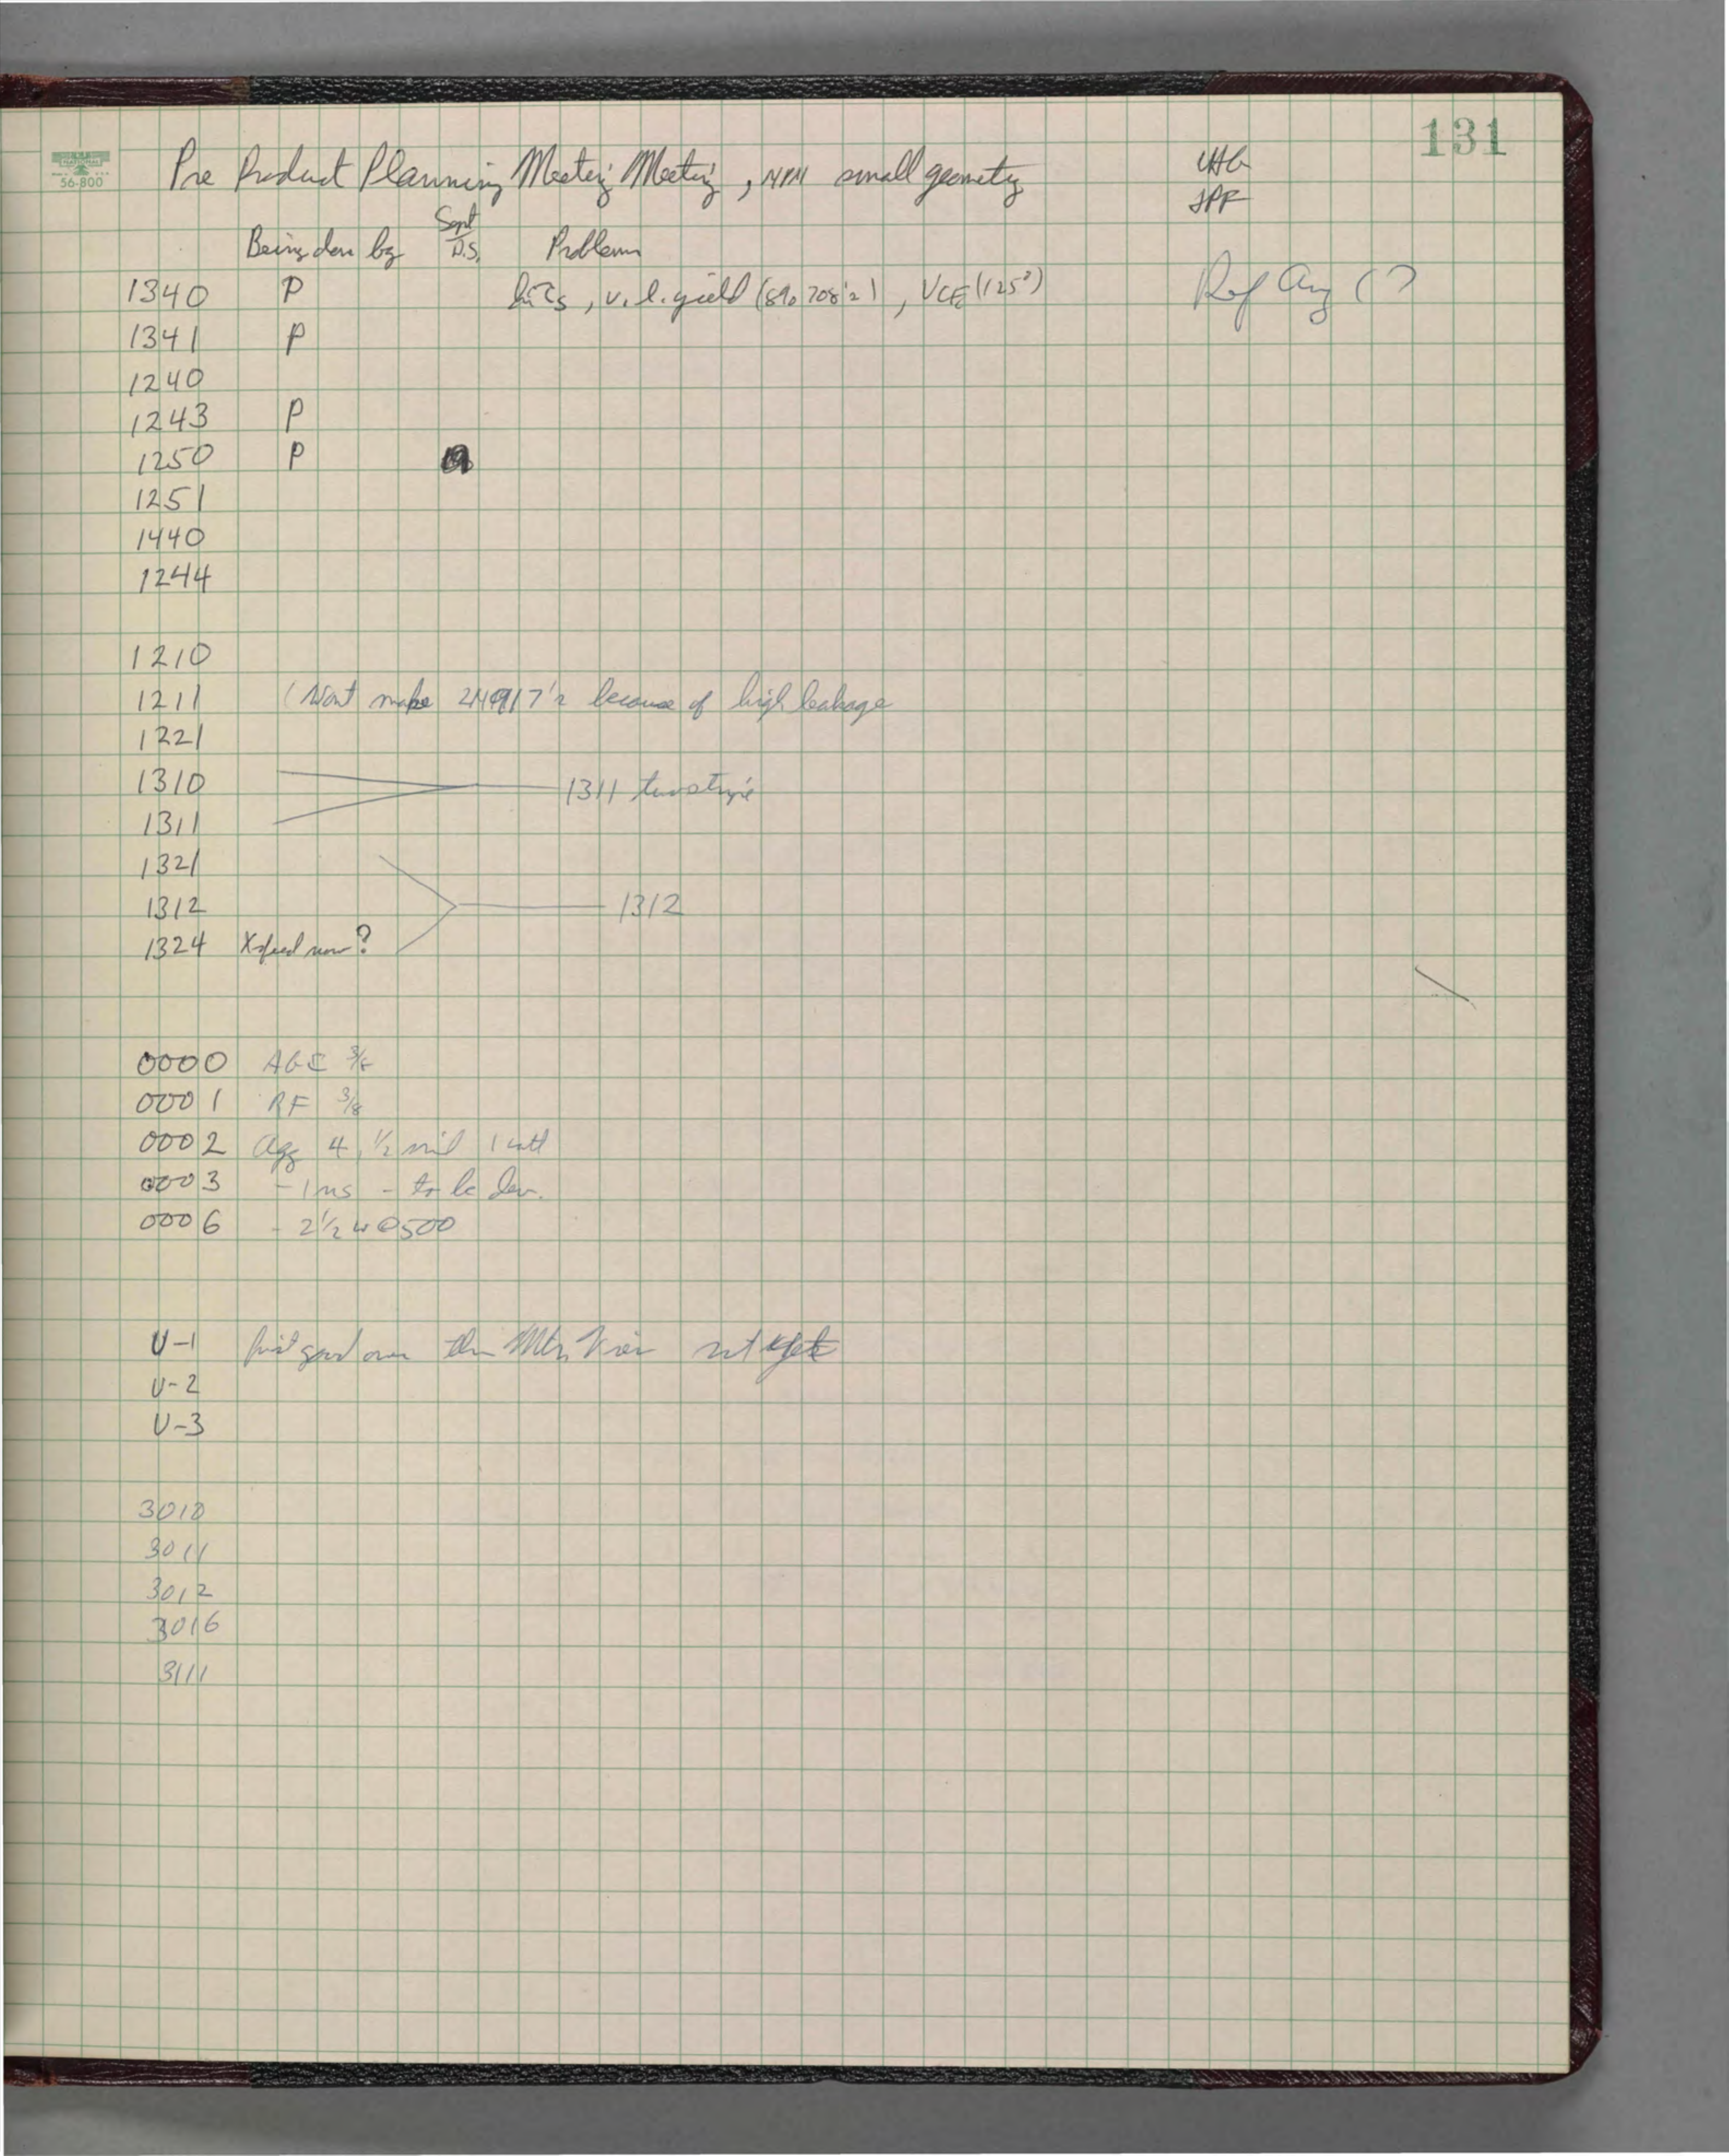 131
NATIONAL
56-800
Pre Product Planning Meeting Meeting, NPN small geometry
JPF
Being done by Sept D.S. Problems
1340 P hi τs, v. l. yield (8% 708's), VCE (125°)
1341 P
1240
1243 P
1250 P
1251
1440
1244
1210
1211 (Wont make 2N917's because of high leakage
1221
1310
1311 two stripe
1311
1321
1312
1312
1324 X-fered now?
0000 AGC 3/8
0001 RF 3/8
0002 Agg 4, 1/2 mil 1 watt
0003 - 1 ns - to be dev.
0006 - 2 1/2 w @ 500
U-1 over the Mtn View
U-2
U-3
3010
3011
3012
3016
3111